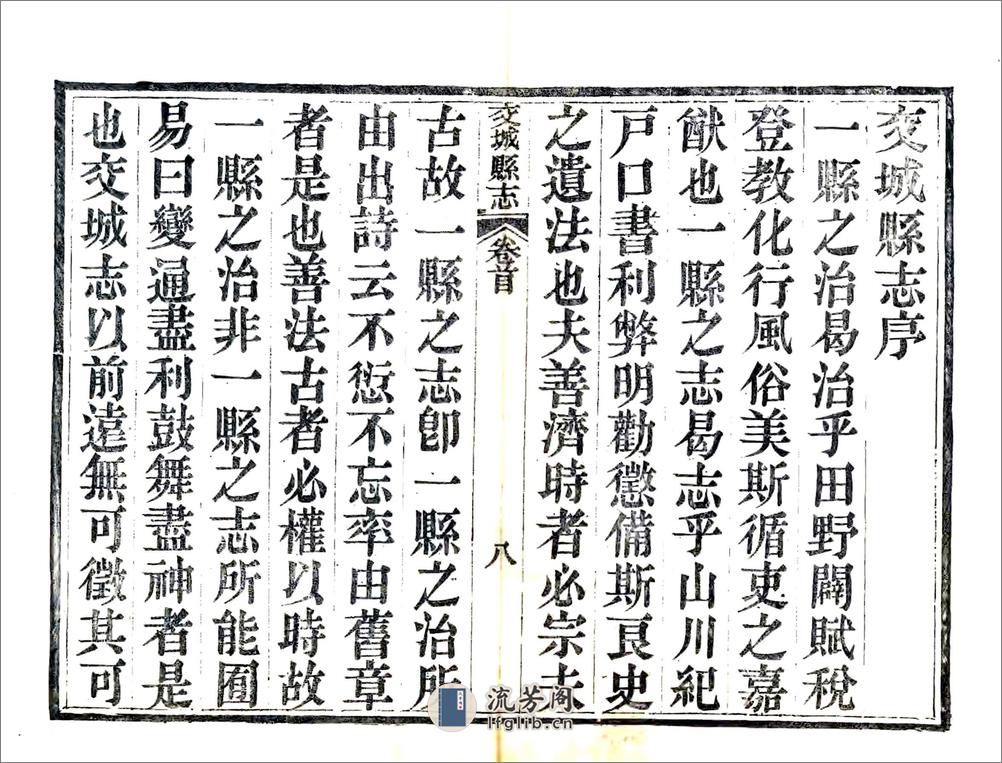 交城縣志序
一縣之治曷治乎田野闢賦稅
登教化行風俗美斯循吏之嘉
猷也一縣之志曷志乎山川紀
戸口書利弊明勸懲備斯良史
之遺法也夫善濟時者必宗夫
交城縣志 卷首 八
古故一縣之志卽一縣之治所
由出詩云不愆不忘率由舊章
者是也善法古者必權以時故
一縣之治非一縣之志所能囿
易曰變通盡利鼓舞盡神者是
也交城志以前遠無可徵其可
流芳阁
lfglib.cn